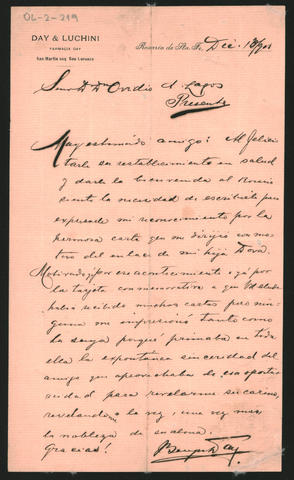 OL-2-219
DAY & LUCHINI
FARMACIA DAY
San Martin esq. San Lorenzo
Rosario de Sta. Fé, Dic. 13/901
Señor Dr. Dn Ovidio A. Lagos
Presente
Muy estimado amigo: Al felici
tarle su restablecimiento en salud
y darle la bienvenida al Rosario
siento la necesidad de escribirle para
expresarle mi reconocimiento por la
hermosa carta que me dirigió con mo
tivo del enlace de mi hija Dora.
Motivado por ese acontecimiento y por
la tarjeta conmemorativa a que Vd alude
habia recibido muchas cartas pero nin
guna me impresionó tanto como
la suya porque primaba en toda
ella la expontánea sinceridad del
amigo que aprovechaba de esa oportu
nidad para revelarme su cariño,
revelando a la vez, una vez mas,
la nobleza de su alma.
Gracias!